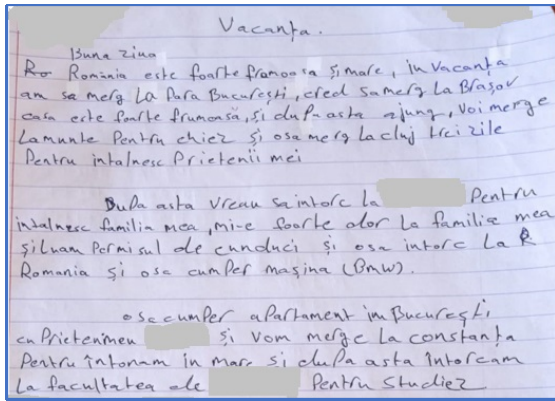 Vacanţa.
Buna ziua
Ro România este foarte frumoasa şi mare, in vacanţa
am sa merg La Para Bucureşti, cred sa merg La Braşov
casa este foarte frumoasă, şi dupa asta ajung, voi merge
La munte Pentru chiez şi osa merg la cluj trei zile
Pentru intalnesc Prietenii mei
Dupa asta vreau sa intorc la Pentru
intalnesc familia mea, mi-e foarte dor La familia mea
şi luam Permisul de cunduci şi osa intorc La R
Romania şi osa cumPer maşina (Bmw).
osa cumPer aPartament im Bucureşti
cu Prietenimeu şi vom merge La constanţa
Pentru întonam in mare şi duPa asta întorcam
La facultatea de Pentru studiez